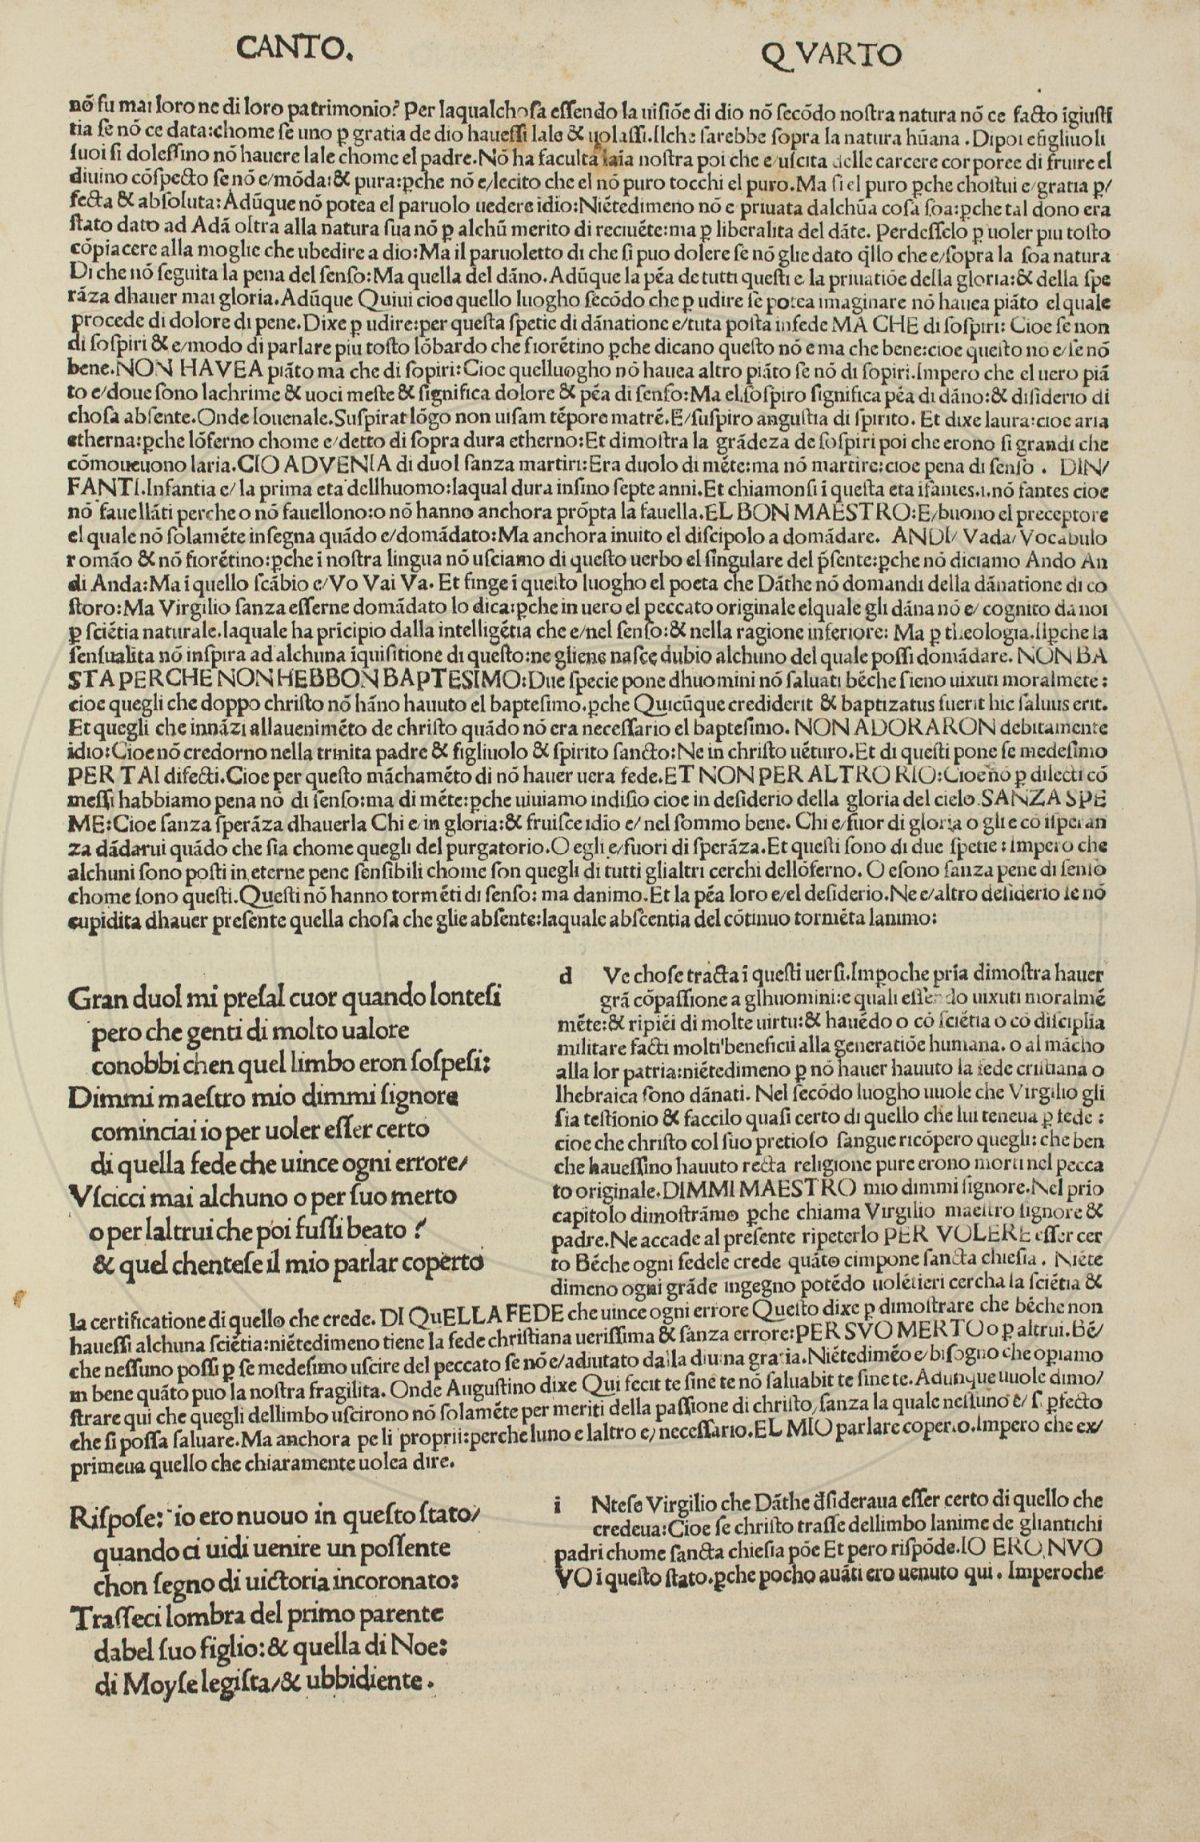 CANTO.
QVARTO
nõ fu mai loro ne di loro patrimonio? Per laqualchosa essendo la uisiõe di dio nõ secõdo nostra natura nõ ce facto ĩgiusti
tia se nõ ce data:chome se uno ꝑ gratia de dio hauessi lale & uolassi.Ilche sarebbe sopra la natura hũana . Dipoi efigliuoli
suoi si dolessino nõ hauere lale chome el padre.Nõ ha faculta laĩa nostra poi che e/uscita delle carcere corporee di fruire el
diuino cõspecto se nõ e/mõda:& pura:ꝑche nõ e/lecito che el nõ puro tocchi el puro.Ma si el puro ꝑche chostui e/gratia ꝑ/
fecta & absoluta:Adũque nõ potea el paruolo uedere idio:Niẽtedimeno nõ e priuata dalchũa cosa soa:ꝑche tal dono era
stato dato ad Adã oltra alla natura sua nõ ꝑ alchũ merito di reciuẽte:ma ꝑ liberalita del dãte. Perdesselo ꝑ uoler piu tosto
cõpiacere alla moglie che ubedire a dio:Ma il paruoletto di che si puo dolere se nõ glie dato q̃llo che e/sopra la soa natura
Di che nõ seguita la pena del senso:Ma quella del dãno.Adũque la pẽa de tutti questi e la priuatiõe della gloria:& della spe
rãza dhauer mai gloria.Adũque Quiui cioe quello luogho secõdo che ꝑ udire se potea imaginare nõ hauea piãto el quale
procede di dolore di pene.Dixe ꝑ udire:per questa spetie di dãnatione e/tuta posta infede MA CHE di sospiri: Cioe se non
di sospiri & e/modo di parlare piu tosto lõbardo che fiorẽtino ꝑche dicano questo nõ e ma che bene:cioe questo no e/se nõ
bene.NON HAVEA piãto ma che di sopiri:Cioe quelluogho nõ hauea altro piãto se nõ di sopiri.Impero che el uero piã
to e/doue sono lachrime & uoci meste & significa dolore & pẽa di senso:Ma el sospiro significa pẽa di dãno:& disiderio di
chosa absente.Onde Iouenale.Suspirat lõgo non uisam tẽpore matrẽ.E/suspiro angustia di spirito. Et dixe laura:cioe aria
etherna:ꝑche lõferno chome e/detto di sopra dura etherno:Et dimostra la grãdeza de sospiri poi che erono si grandi che
cõmoueuono laria.CIO ADVENIA di duol sanza martiri:Era duolo di mẽte:ma nõ martire:cioe pena di senso . DIN/
FANTI.Infantia e/ la prima eta dellhuomo:laqual dura insino septe anni.Et chiamonsi ĩ questa eta ifantes.i.nõ fantes cioe
nõ fauellãti perche o nõ fauellono:o nõ hanno anchora prõpta la fauella.EL BON MAESTRO:E/buono el preceptore
el quale nõ solamẽte insegna quãdo e/domãdato:Ma anchora inuito el discipolo a domãdare. ANDI/ Vada/Vocabulo
romão & nõ fiorẽtino:ꝑche ĩ nostra lingua nõ usciamo di questo uerbo el singulare del p̃sente:ꝑche nõ diciamo Ando An
di Anda:Ma ĩ quello scãbio e/Vo Vai Va. Et finge ĩ questo luogho el poeta che Dãthe nõ domandi della dãnatione di co
storo:Ma Virgilio sanza esserne domãdato lo dica:ꝑche in uero el peccato originale elquale gli dãna nõ e/ cognito da noi
ꝑ sciẽtia naturale.laquale ha prĩcipio dalla intelligẽtia che e/nel senso:& nella ragione inferiore: Ma ꝑ theologia.Iꝑche la
sensualita nõ inspira ad alchuna ĩquisitione di questo:ne gliene nasce dubio alchuno del quale possi domãdare. NON BA
STA PERCHE NON HEBBON BAPTESIMO:Due specie pone dhuomini nõ saluati bẽche sieno uixuti moralmẽte:
cioe quegli che doppo christo nõ hãno hauuto el baptesimo.ꝑche Quicũque crediderit & baptizatus fuerit hic saluus erit.
Et quegli che innãzi allaueniméto de christo quãdo nõ era necessario el baptesimo. NON ADORARON debitamente
idio:Cioe nõ credorno nella trinita padre & figliuolo & spirito sancto:Ne in christo uẽturo.Et di questi pone se medesimo
PER TAI difecti.Cioe per questo mãchamẽto di nõ hauer uera fede.ET NON PER ALTRO RIO:Cioe nõ ꝑ dilecti cõ
messi habbiamo pena nõ di senso:ma di mẽte:ꝑche uiuiamo indisio cioe in desiderio della gloria del cielo.SANZA SPE
ME:Cioe sanza sperãza dhauerla Chi e/in gloria:& fruisce idio e/ nel sommo bene. Chi e/fuor di gloria o glie cõ isperan
za dãdarui quãdo che sia chome quegli del purgatorio.O egli e/fuori di sperãza.Et questi sono di due spetie:Impero che
alchuni sono posti in eterne pene sensibili chome son quegli di tutti glialtri cerchi dellõferno. O esono sanza pene di senso
chome sono questi.Questi nõ hanno tormẽti di senso: ma danimo. Et la pẽa loro e/el desiderio.Ne e/altro desiderio se nõ
cupidita dhauer presente quella chosa che glie absente:laquale abscentia del cõtinuo tormẽta lanimo:
Gran duol mi presal cuor quando lontesi
pero che genti di molto ualore
conobbi chen quel limbo eron sospesi:
Dimmi maestro mio dimmi signore
cominciai io per uoler esser certo
di quella fede che uince ogni errore/
Vscicci mai alchuno o per suo merto
o per laltrui che poi fussi beato ?
& quel chentese il mio parlar coperto
d Ve chose tracta ĩ questi uersi.Impoche prĩa dimostra hauer
grã cõpassione a glhuomini:e quali essendo uixuti moralmẽ
mẽte:& ripiẽi di molte uirtu:& hauẽdo o cõ sciẽtia o cõ disciplĩa
militare facti molti beneficii alla generatiõe humana. o al mãcho
alla lor patria:niẽtedimeno ꝑ nõ hauer hauuto la fede cristiana o
lhebraica sono dãnati. Nel secõdo luogho uuole che Virgilio gli
sia testionio & faccilo quasi certo di quello che lui teneua ꝑ fede :
cioe che christo col suo pretioso sangue ricõpero quegli: che ben
che hauessino hauuto recta religione pure erono morti nel pecca
to originale.DIMMI MAESTRO mio dimmi signore.Nel prio
capitolo dimostrãmo ꝑche chiama Virgilio maestro signore &
padre.Ne accade al presente ripeterlo PER VOLERE esser cer
to Bẽche ogni fedele crede quãto cimpone sancta chiesia . Niẽte
dimeno ogni grãde ingegno potẽdo uolẽtieri cercha la sciẽtia &
la certificatione di quello che crede. DI QuELLA FEDE che uince ogni errore Questo dixe ꝑ dimostrare che bẽche non
hauessi alchuna sciẽtia:niẽtedimeno tiene la fede christiana uerissima & sanza errore:PER SVO MERTO o ꝑ altrui.Bẽ/
che nessuno possi ꝑ se medesimo uscire del peccato se nõ e/adiutato dalla diuina gratia.Niẽtedimẽo e/bisogno che opiamo
in bene quãto puo la nostra fragilita. Onde Augustino dixe Qui fecit te sine te nõ saluabit te sine te.Adunque uuole dimo/
strare qui che quegli dellimbo uscirono nõ solamẽte per meriti della passione di christo/sanza la quale nessuno e/ si ꝑfecto
che si possa saluare.Ma anchora pe li proprii:perche luno e laltro e/necessario.EL MIO parlare coperto.Impero che ex/
primeua quello che chiaramente uolea dire.
Rispose: io ero nuouo in questo stato/
quando ci uidi uenire un possente
chon segno di uictoria incoronato:
Trasseci lombra del primo parente
dabel suo figlio:& quella di Noe:
di Moyse legista/& ubbidiente .
i Ntese Virgilio che Dãthe d̃sideraua esser certo di quello che
credeua:Cioe se christo trasse dellimbo lanime de gliantichi
padri chome sancta chiesia põe Et pero rispõde.IO ERO NVO
VO ĩ questo stato.ꝑche pocho auãti ero uenuto qui . Imperoche